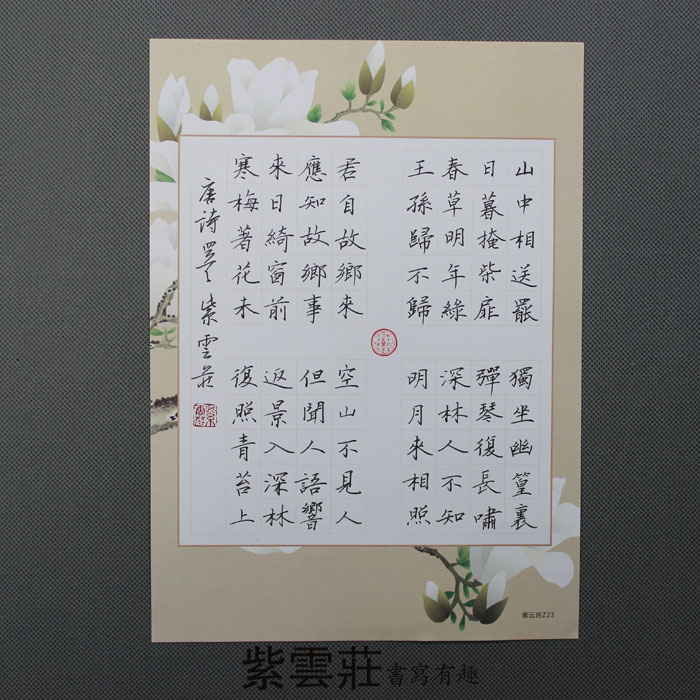 山中相送罷
日暮掩柴扉
春草明年綠
王孫歸不歸
獨坐幽篁裏
彈琴復長嘯
深林人不知
明月來相照
君自故鄉來
應知故鄉事
來日綺窗前
寒梅著花未
空山不見人
但聞人語響
返景入深林
復照青苔上
唐詩 紫雲莊
紫云庄Z23
紫雲莊 書寫有趣